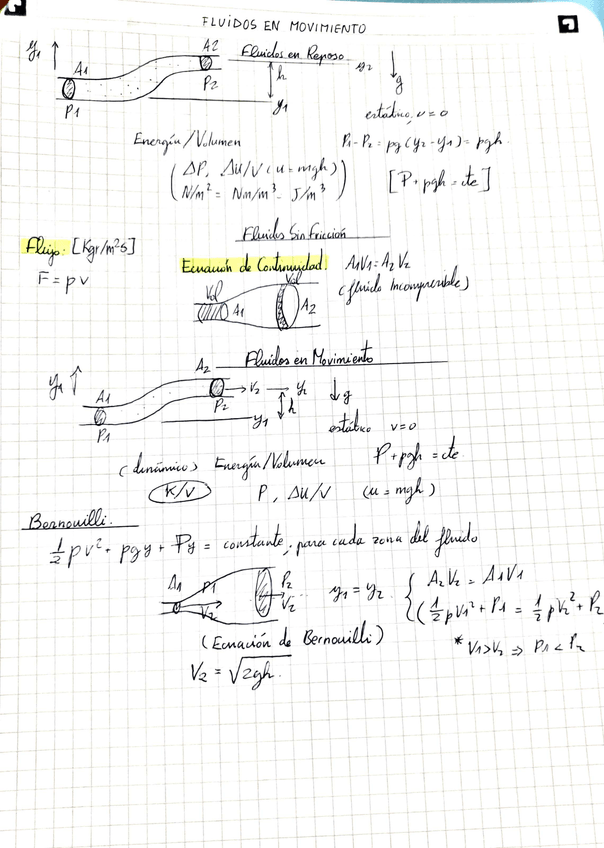 FLUIDOS EN MOVIMIENTO
y1 A1 A2 Fluidos en Reposo y2
P1 P2 h y1 g
estático, v = 0
Energía/Volumen P1 - P2 = ρg(y2 - y1) = ρgh.
(ΔP, ΔU/V (u = mgh)
N/m² = Nm/m³ = J/m³) [P + ρgh = cte]
Fluidos Sin Fricción
Flujo: [Kgr/m²s]
F = ρv
Ecuación de Continuidad. A1V1 = A2V2
(fluido incompresible)
Vol A1 Vol A2
Fluidos en Movimiento
y1 A1 A2 v2 y2 g
P1 P2 y1 h
estático v = 0
(dinámico) Energía/Volumen P + ρgh = cte.
K/V P, ΔU/V (u = mgh)
Bernouilli:
½ρv² + ρgy + Py = constante, para cada zona del fluido
A1 P1 V2 P2 V2 y1 = y2 { A2V2 = A1V1
(½ρV1² + P1 = ½ρV2² + P2
(Ecuación de Bernouilli) * V1>V2 ⇒ P1 < P2
V2 = √2gh.